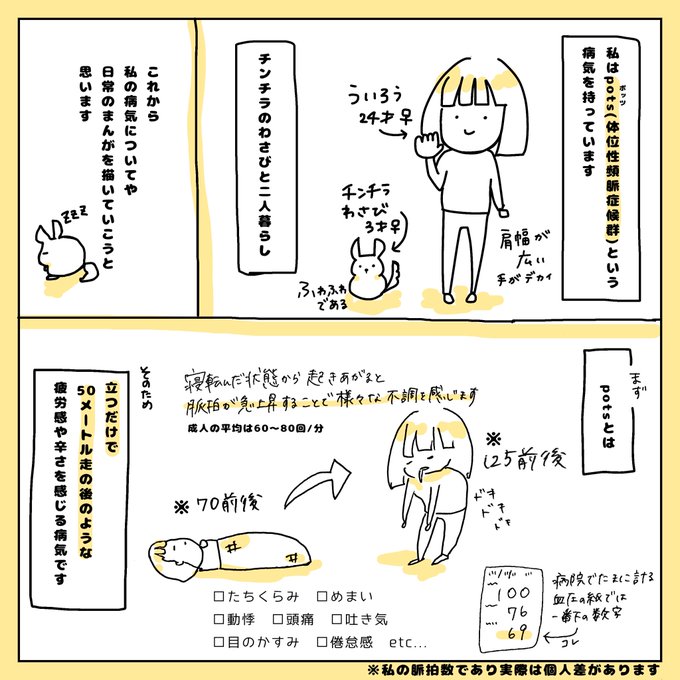 私はpots(体位性頻脈症候群)という
ポッツ
病気を持っています
ういろう
24才♀
チンチラ
わさび
3才♀
肩幅が
広い
手がデカイ
ふわふわ
である
チンチラのわさびと二人暮らし
これから
私の病気についてや
日常のまんがを描いていこうと
思います
zzz
まず
potsとは
寝転んだ状態から起きあがると
脈拍が急上昇することで様々な不調を感じます
成人の平均は60〜80回/分
※
125前後
ドキ
ドキ
ドキ
※70前後
□たちくらみ □めまい
□動悸 □頭痛 □吐き気
□目のかすみ □倦怠感 etc...
100
76
69
病院でたまに計る
血圧の紙では
一番下の数字
コレ
そのため
立つだけで
50メートル走の後のような
疲労感や辛さを感じる病気です
※私の脈拍数であり実際は個人差があります